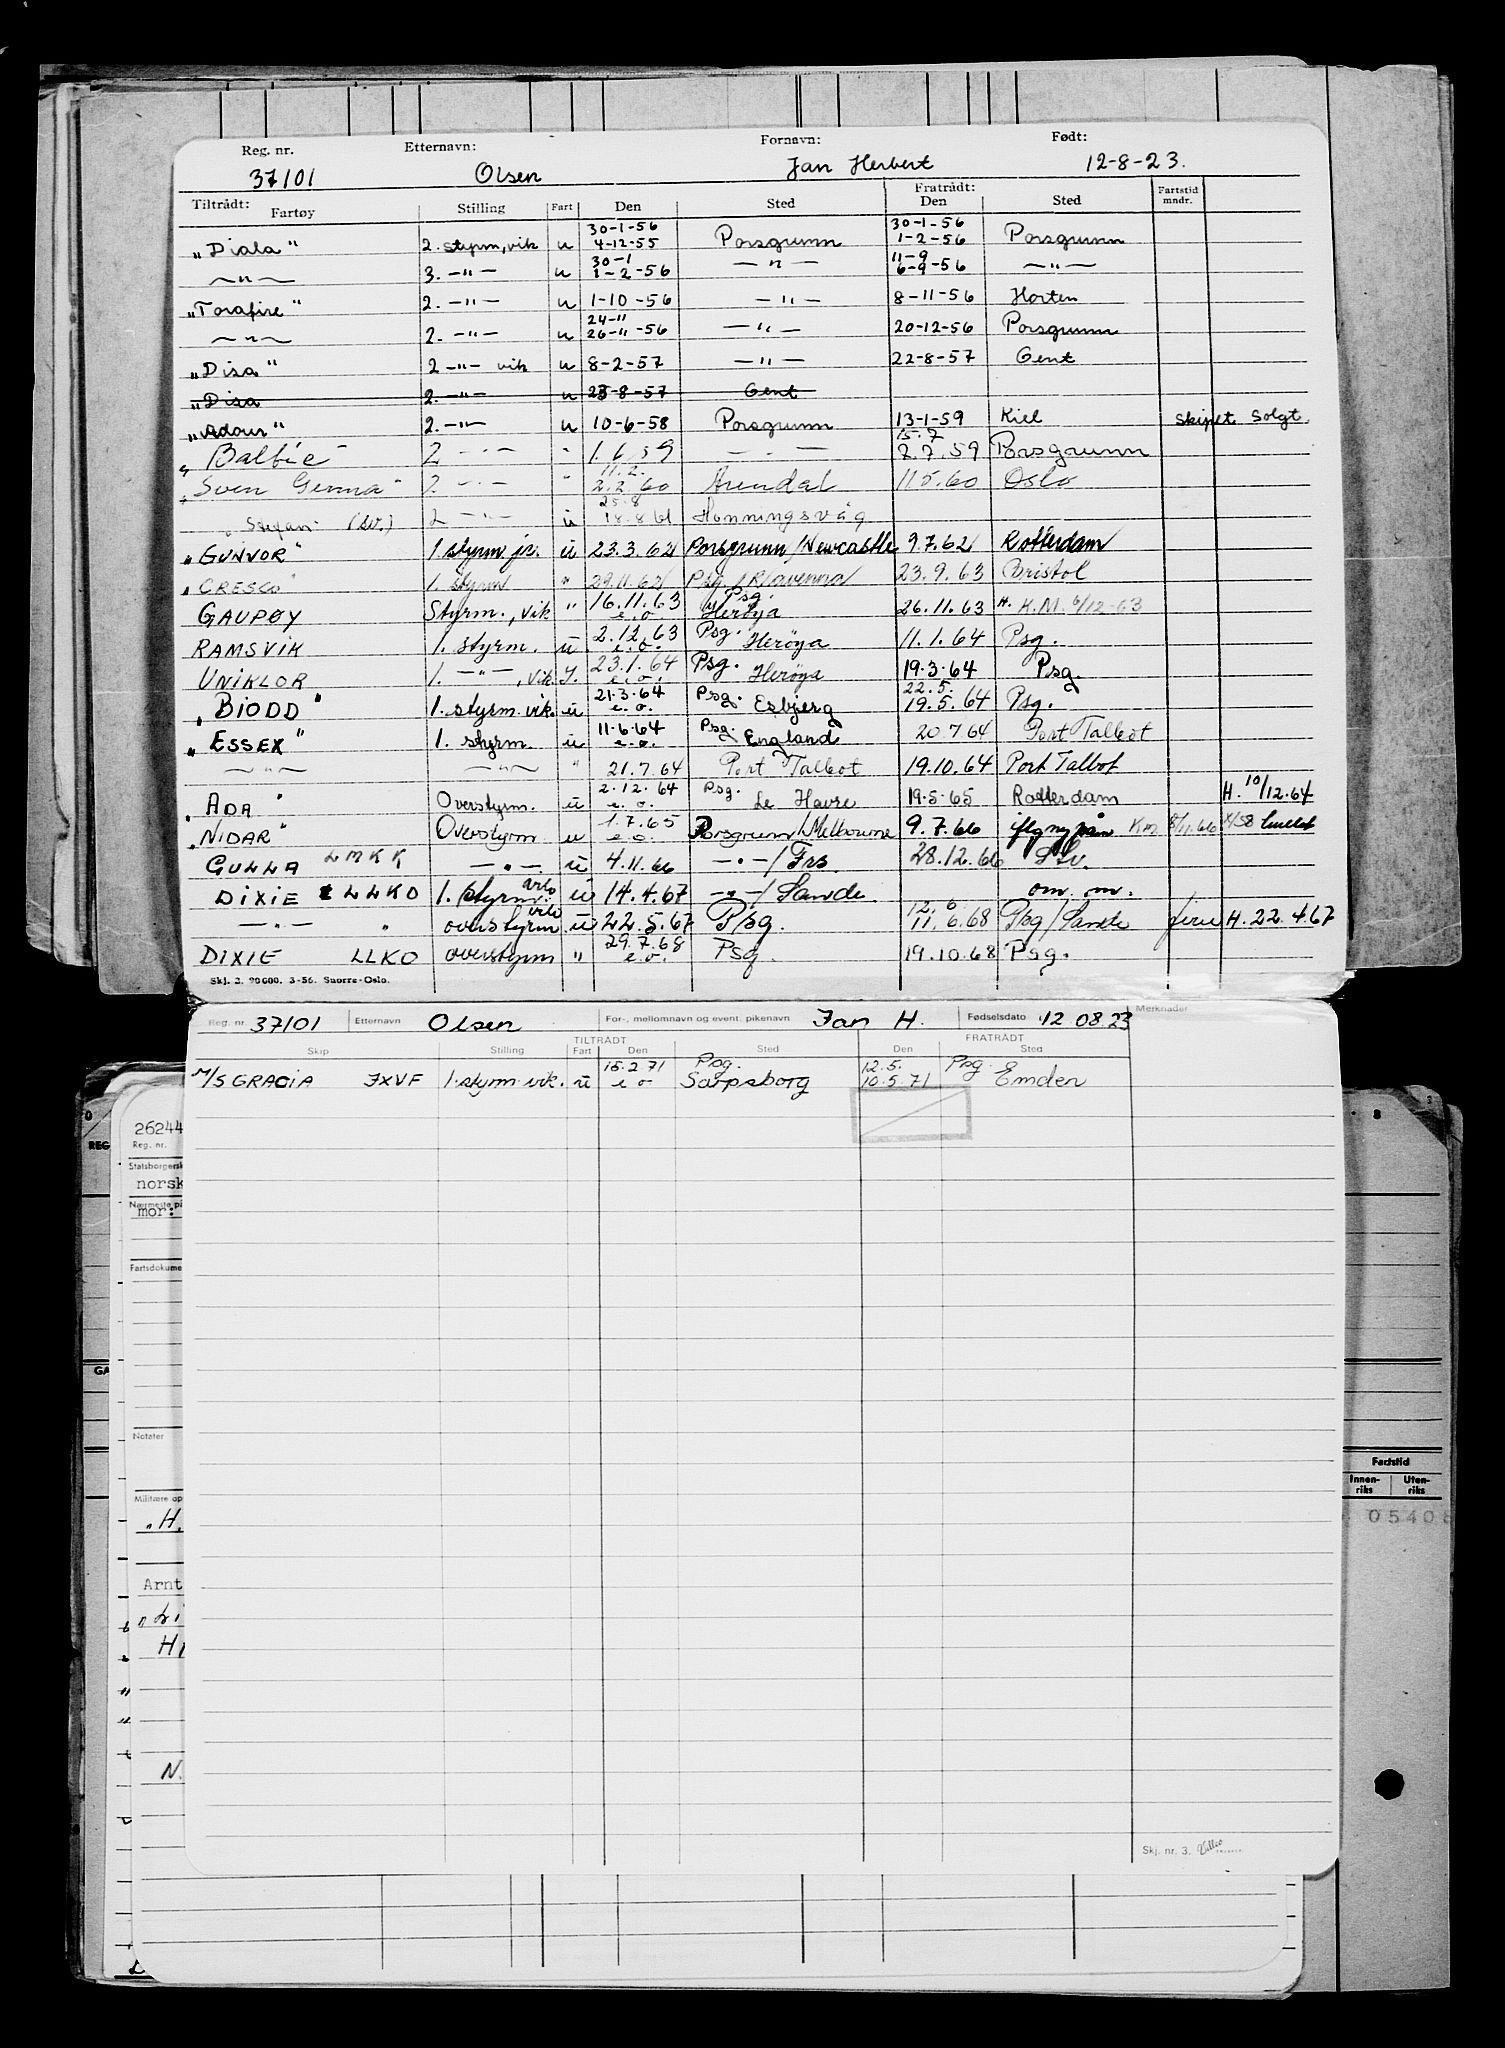 Reg. nr. Etternavn: Fornavn: Født:
37101 Olsen Jan Herbert 12-8-23.
Tiltrådt: Fratrådt:
Fartøy Stilling Fart Den Sted Den Sted Fartstid mndr.
30-1-56 30-1-56
"Diala" 2. styrm, vik u 4-12-55 Porsgrunn 1-2-56 Porsgrunn
30-1 11-9
—"— 3. —"— u 1-2-56 —"— 6-9-56 —"—
"Torafire" 2. —"— u 1-10-56 —"— 8-11-56 Horten
24-11
—"— 2. —"— u 26-11-56 —"— 20-12-56 Porsgrunn
"Disa" 2 —"— vik u 8-2-57 —"— 22-8-57 Gent
"Disa 2. —"— u 23-8-57 Gent
"Adour" 2. —"— u 10-6-58 Porsgrunn 13-1-59 Kiel Skipet solgt.
15.7
"Baltic 2 —"— " 1.6.59 —"— 2.7.59 Porsgrunn
11.2.
"Sven Germa" 2 —"— " 2.2.60 Arendal 11.5.60 Oslo
25.8
Stefan (sv.) 2 —"— ü 18.8.61 Honningsvåg
"GUNVOR" 1. styrm jr. ü 23.3.62 Porsgrunn/Newcastle 9.7.62 Rotterdam
"CRESCO" 1. styrm " 29.11.62 Psg./Ravenna 23.9.63 Bristol
Psg.
GAUPØY Styrm., vik " 16.11.63 e.o. Herøya 26.11.63 H. K.M. 6/12-63
RAMSVIK 1. styrm. ü 2.12.63 e.o. Psg. Herøya 11.1.64 Psg.
UNIKLOR 1. —"—, vik J. 23.1.64 e.o. Psg. Herøya 19.3.64 Psg.
22.5.
"BIODD" 1. styrm. vik. ü 21.3.64 e.o. Psg. Esbjerg 19.5.64 Psg.
"ESSEX" 1. styrm. ü 11.6.64 e.o. Psg. England 20.7.64 Port Talbot
—"— —"— " 21.7.64 Port Talbot 19.10.64 Port Talbot
"ADA" Overstyrm. ü 2.12.64 e.o. Psg. Le Havre 19.5.65 Rotterdam H. 10/12.64
"NIDAR" Overstyrm u 1.7.65 e.o. Porsgrunn/Melbourne 9.7.66
GULLA LMKK —"— ü 4.11.66 —"—/Frs 28.12.66
DIXIE LLKO 1. styrm. ü 14.4.67 —"—/Sande om. m.
12.6
—"— " overstyrm ü 22.5.67 Psg. 11.6.68 Psg/Sande ferie H. 22.4.67
DIXIE LLKO overstyrm " 29.7.68 e.o. Psg. 19.10.68 Psg.
Skj. 2. 90 000. 3-56. Snorre-Oslo.
Reg. nr. 37101 Etternavn Olsen For-, mellomnavn og event. pikenavn Jan H. Fødselsdato 12 08.23 Merknader
TILTRÅDT FRATRÅDT
Skip Stilling Fart Den Sted Den Sted
15.2.71 Psg. 12.5. Psg.
M/S GRACIA JXVF 1. styrm. vik. ü e o Sarpsborg 10.5.71 Emden
26244
Reg. nr.
Statsborgersk
norsk
Nærmeste på
mor:
Fartsdokume
GA
Notater
Fartstid
Innen-riks Uten-riks
Militære op
"H.
05408
Arnt
N.
Skj. nr. 3.